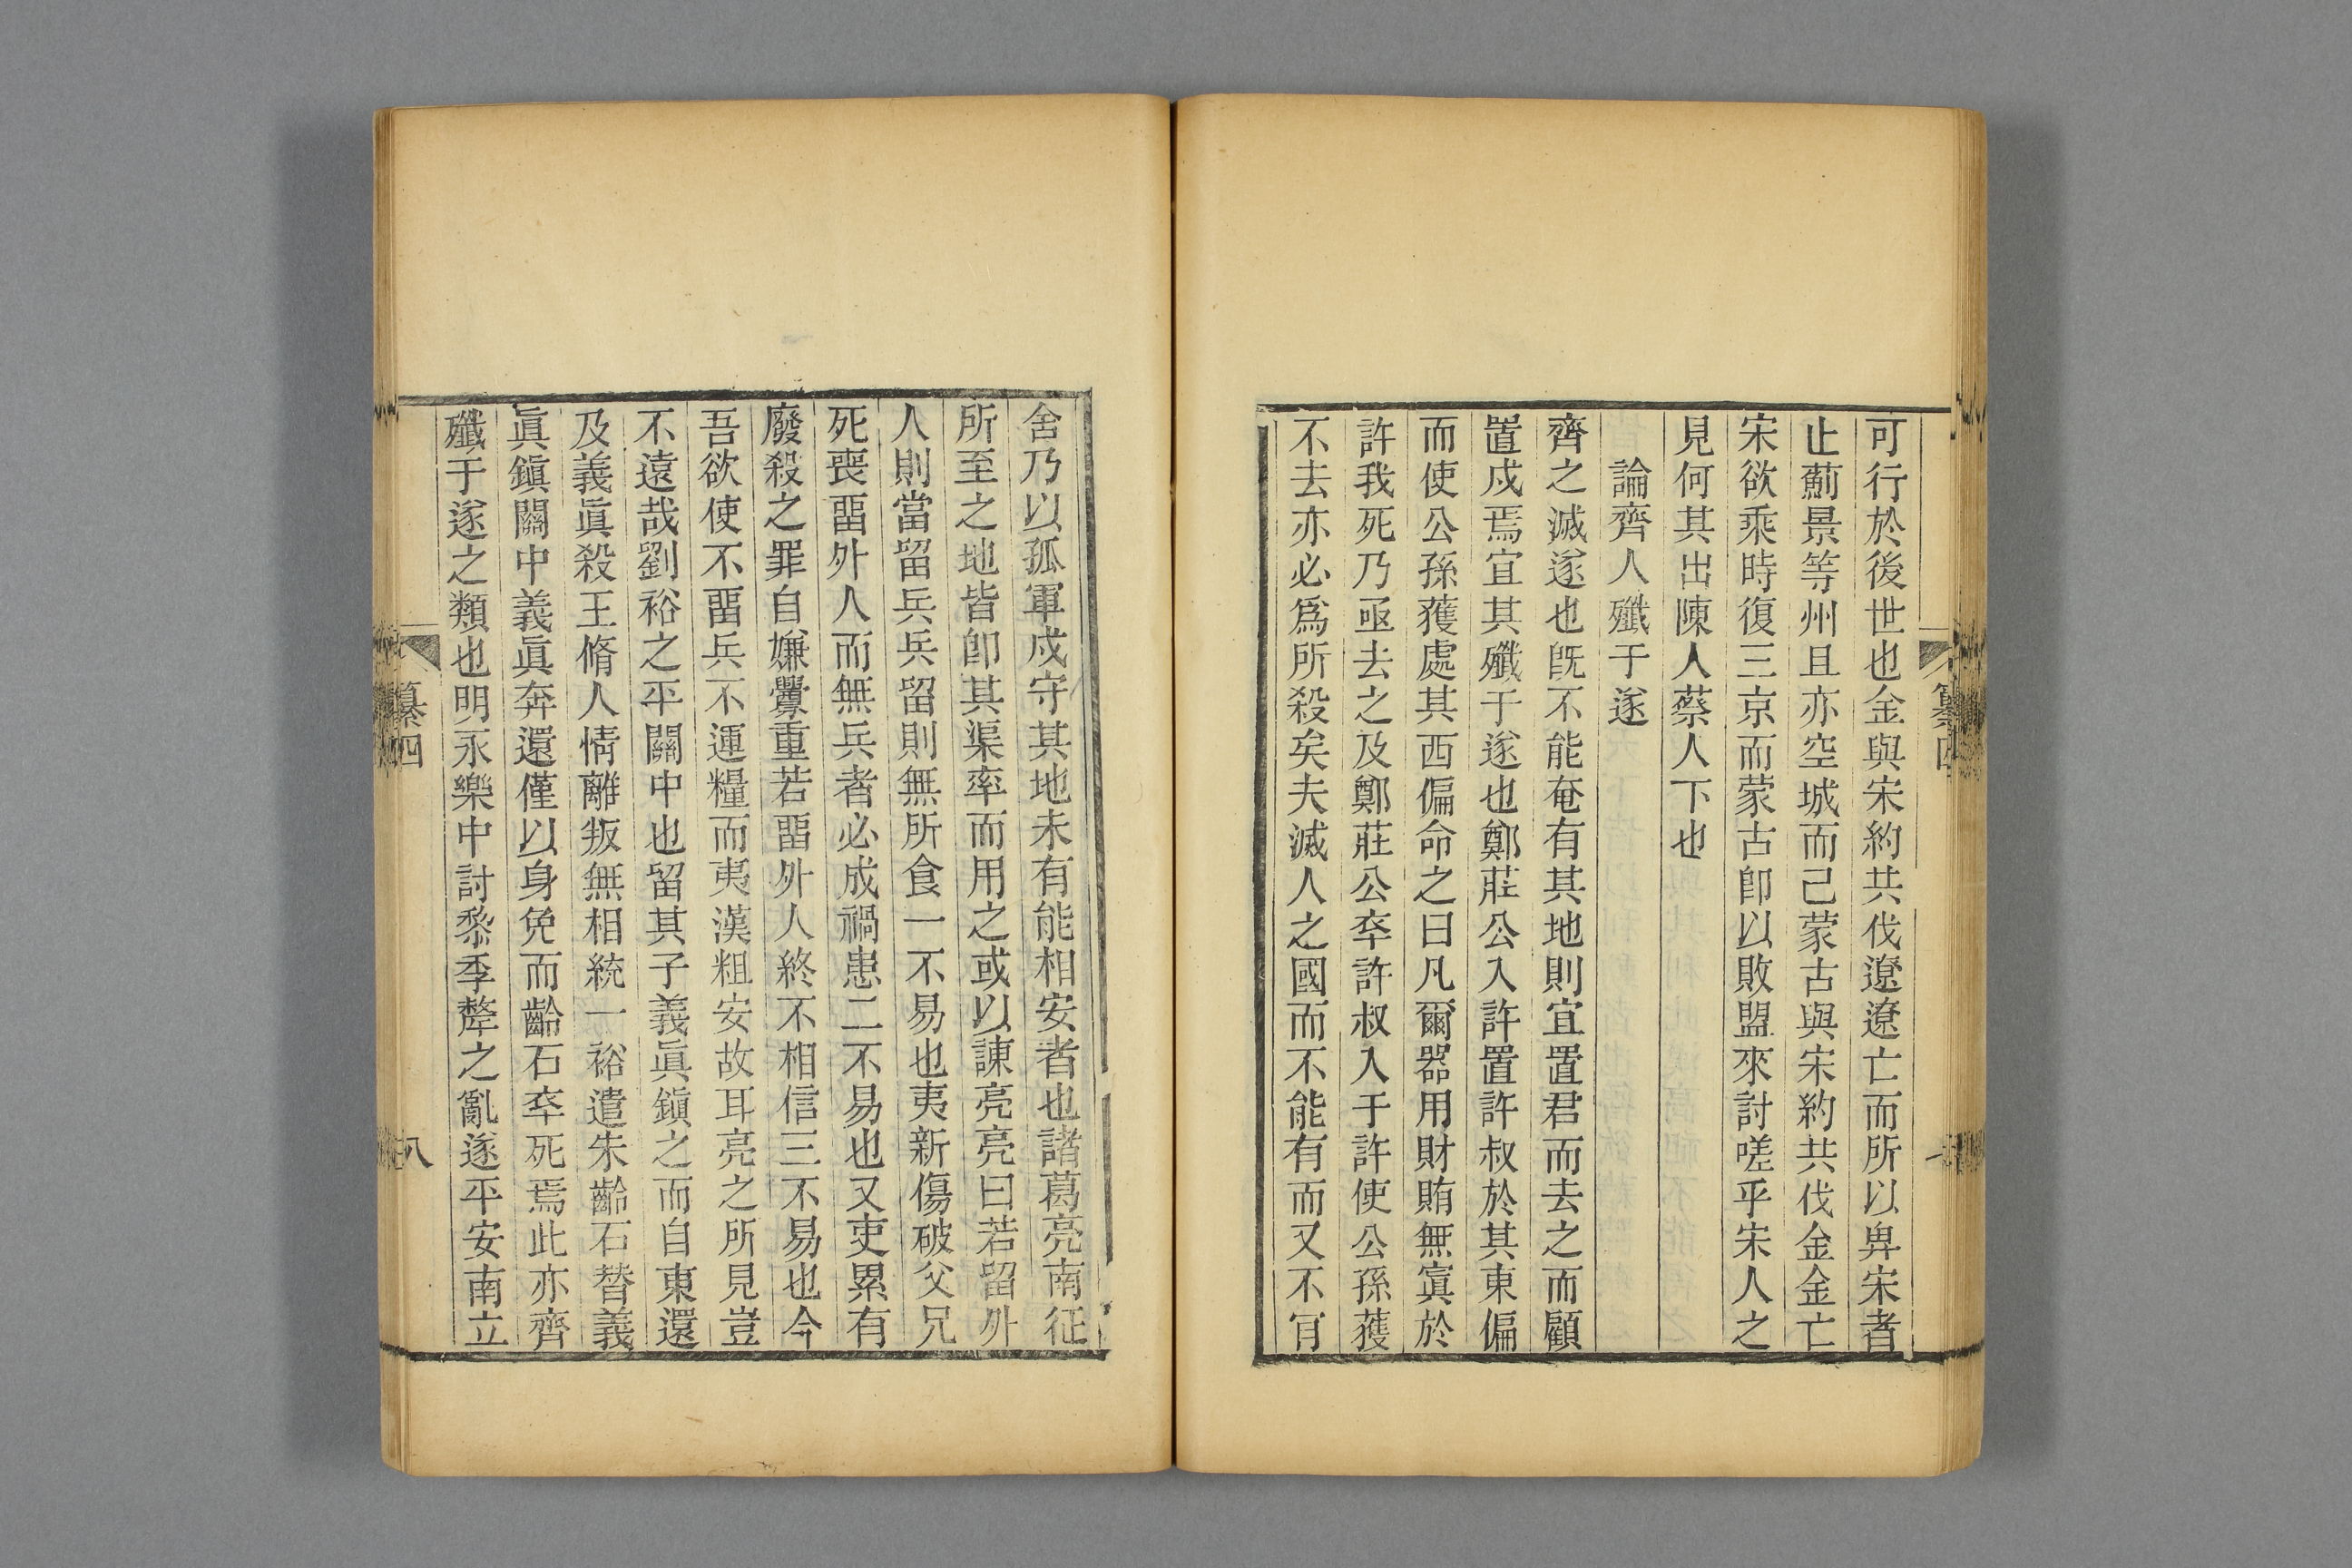 可行於後世也金與宋約共伐遼遼亡而所以畀宋者
止薊景等州且亦空城而已蒙古與宋約共伐金金亡
宋欲乘時復三京而蒙古卽以敗盟來討嗟乎宋人之
見何其出陳人蔡人下也
論齊人殲于遂
齊之滅遂也旣不能奄有其地則宜置君而去之而顧
置戍焉宜其殲于遂也鄭莊公入許置許叔於其東偏
而使公孫獲處其西偏命之曰凡爾器用財賄無寘於
許我死乃亟去之及鄭莊公卒許叔入于許使公孫獲
不去亦必爲所殺矣夫滅人之國而不能有而又不肎
舍乃以孤軍戍守其地未有能相安者也諸葛亮南征
所至之地皆卽其渠率而用之或以諫亮亮曰若留外
人則當留兵兵留則無所食一不易也夷新傷破父兄
死喪畱外人而無兵者必成禍患二不易也又吏累有
廢殺之罪自嫌釁重若畱外人終不相信三不易也今
吾欲使不畱兵不運糧而夷漢粗安故耳亮之所見豈
不遠哉劉裕之平關中也留其子義眞鎭之而自東還
及義眞殺王脩人情離叛無相統一裕遣朱齡石替義
眞鎭關中義眞奔還僅以身免而齡石卒死焉此亦齊
殲于遂之類也明永樂中討黎季犛之亂遂平安南立
纂四
八